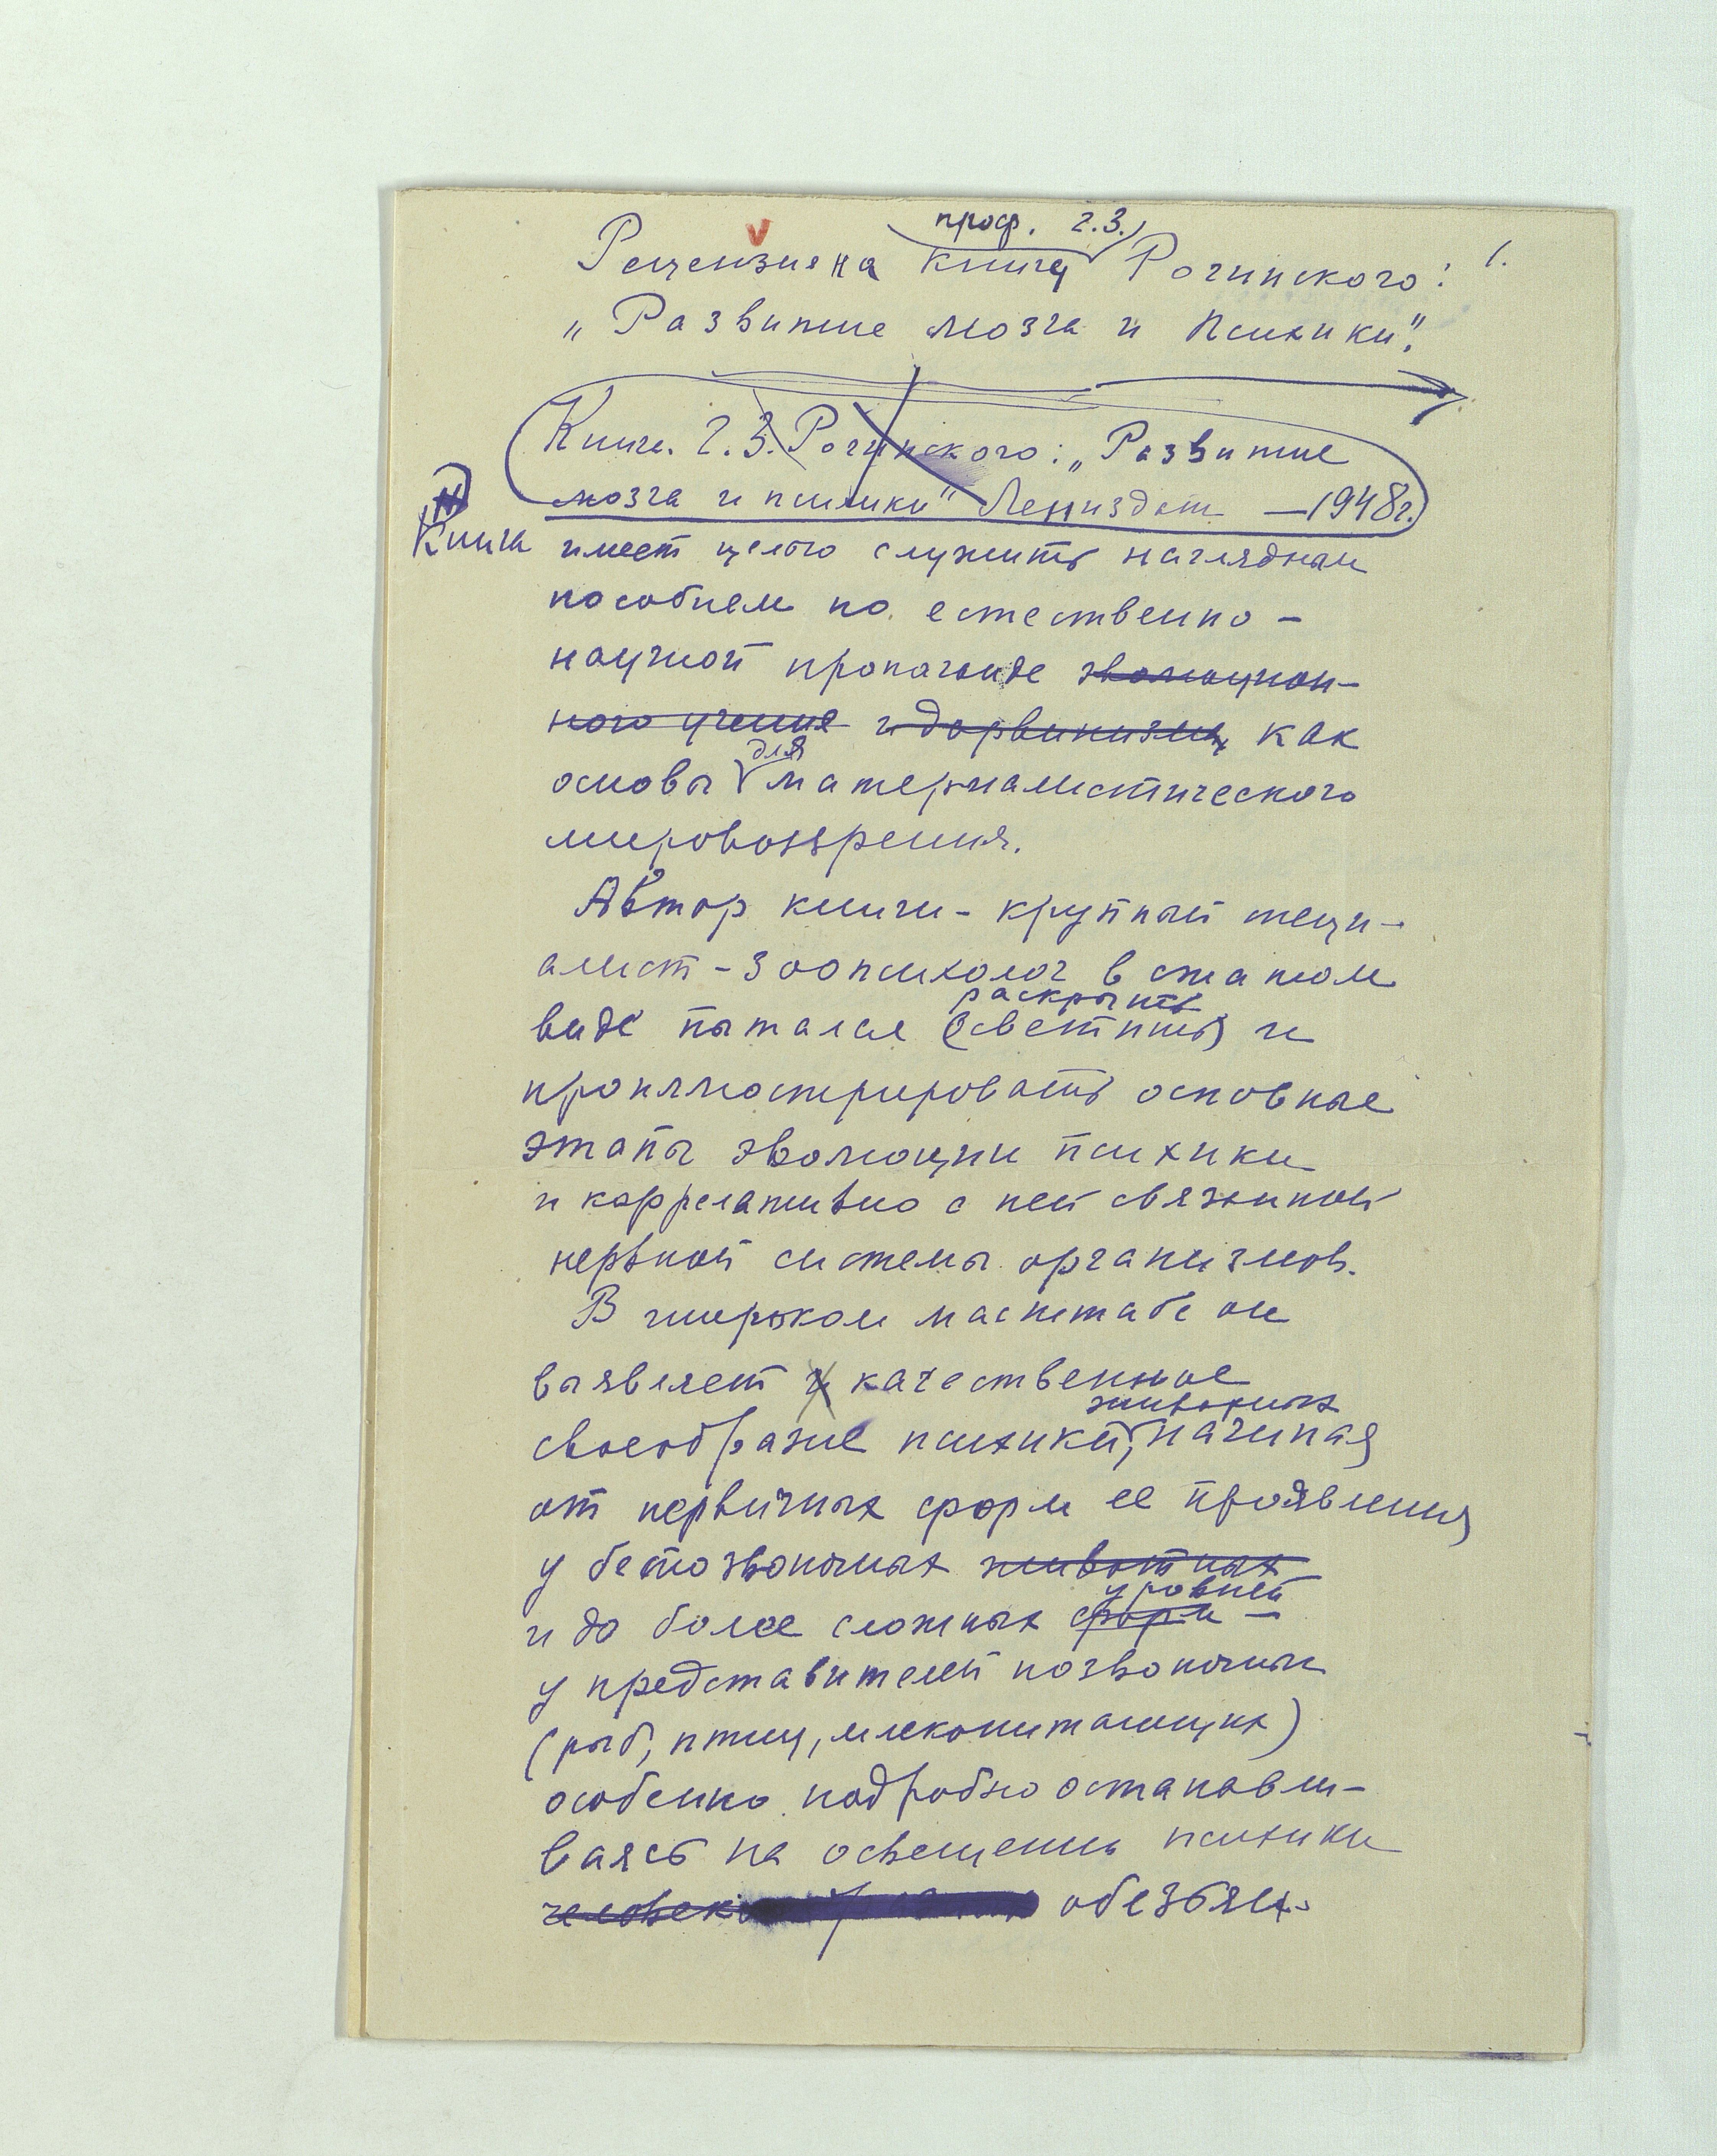 проф. Г.З.
Рецензия на книгу Рогинского: 1.
„Развитие мозга и психики".
Книга Г.З. Рогинского: „Развитие
мозга и психики" Лениздат — 1948г.
Книга имеет целью служить наглядным
пособием по естественно-
научной пропаганде эволюцион-
ного учения и дарвинизму как
для
основы материалистического
мировоззрения.
Автор книги - крупный специ-
алист - зоопсихолог в сжатом
раскрыть
виде пытался (осветить) и
проиллюстрировать основные
этапы эволюции психики
и коррелативно с ней связанной
нервной системы организмов.
В широком масштабе он
выявляет и качественное
животных
своеобразие психики, начиная
от первичных форм ее проявления
у беспозвоночных животных
уровней
и до более сложных форм —
у представителей позвоночных
(рыб, птиц, млекопитающих)
особенно подробно останавли-
ваясь на освещении психики
обезьян.